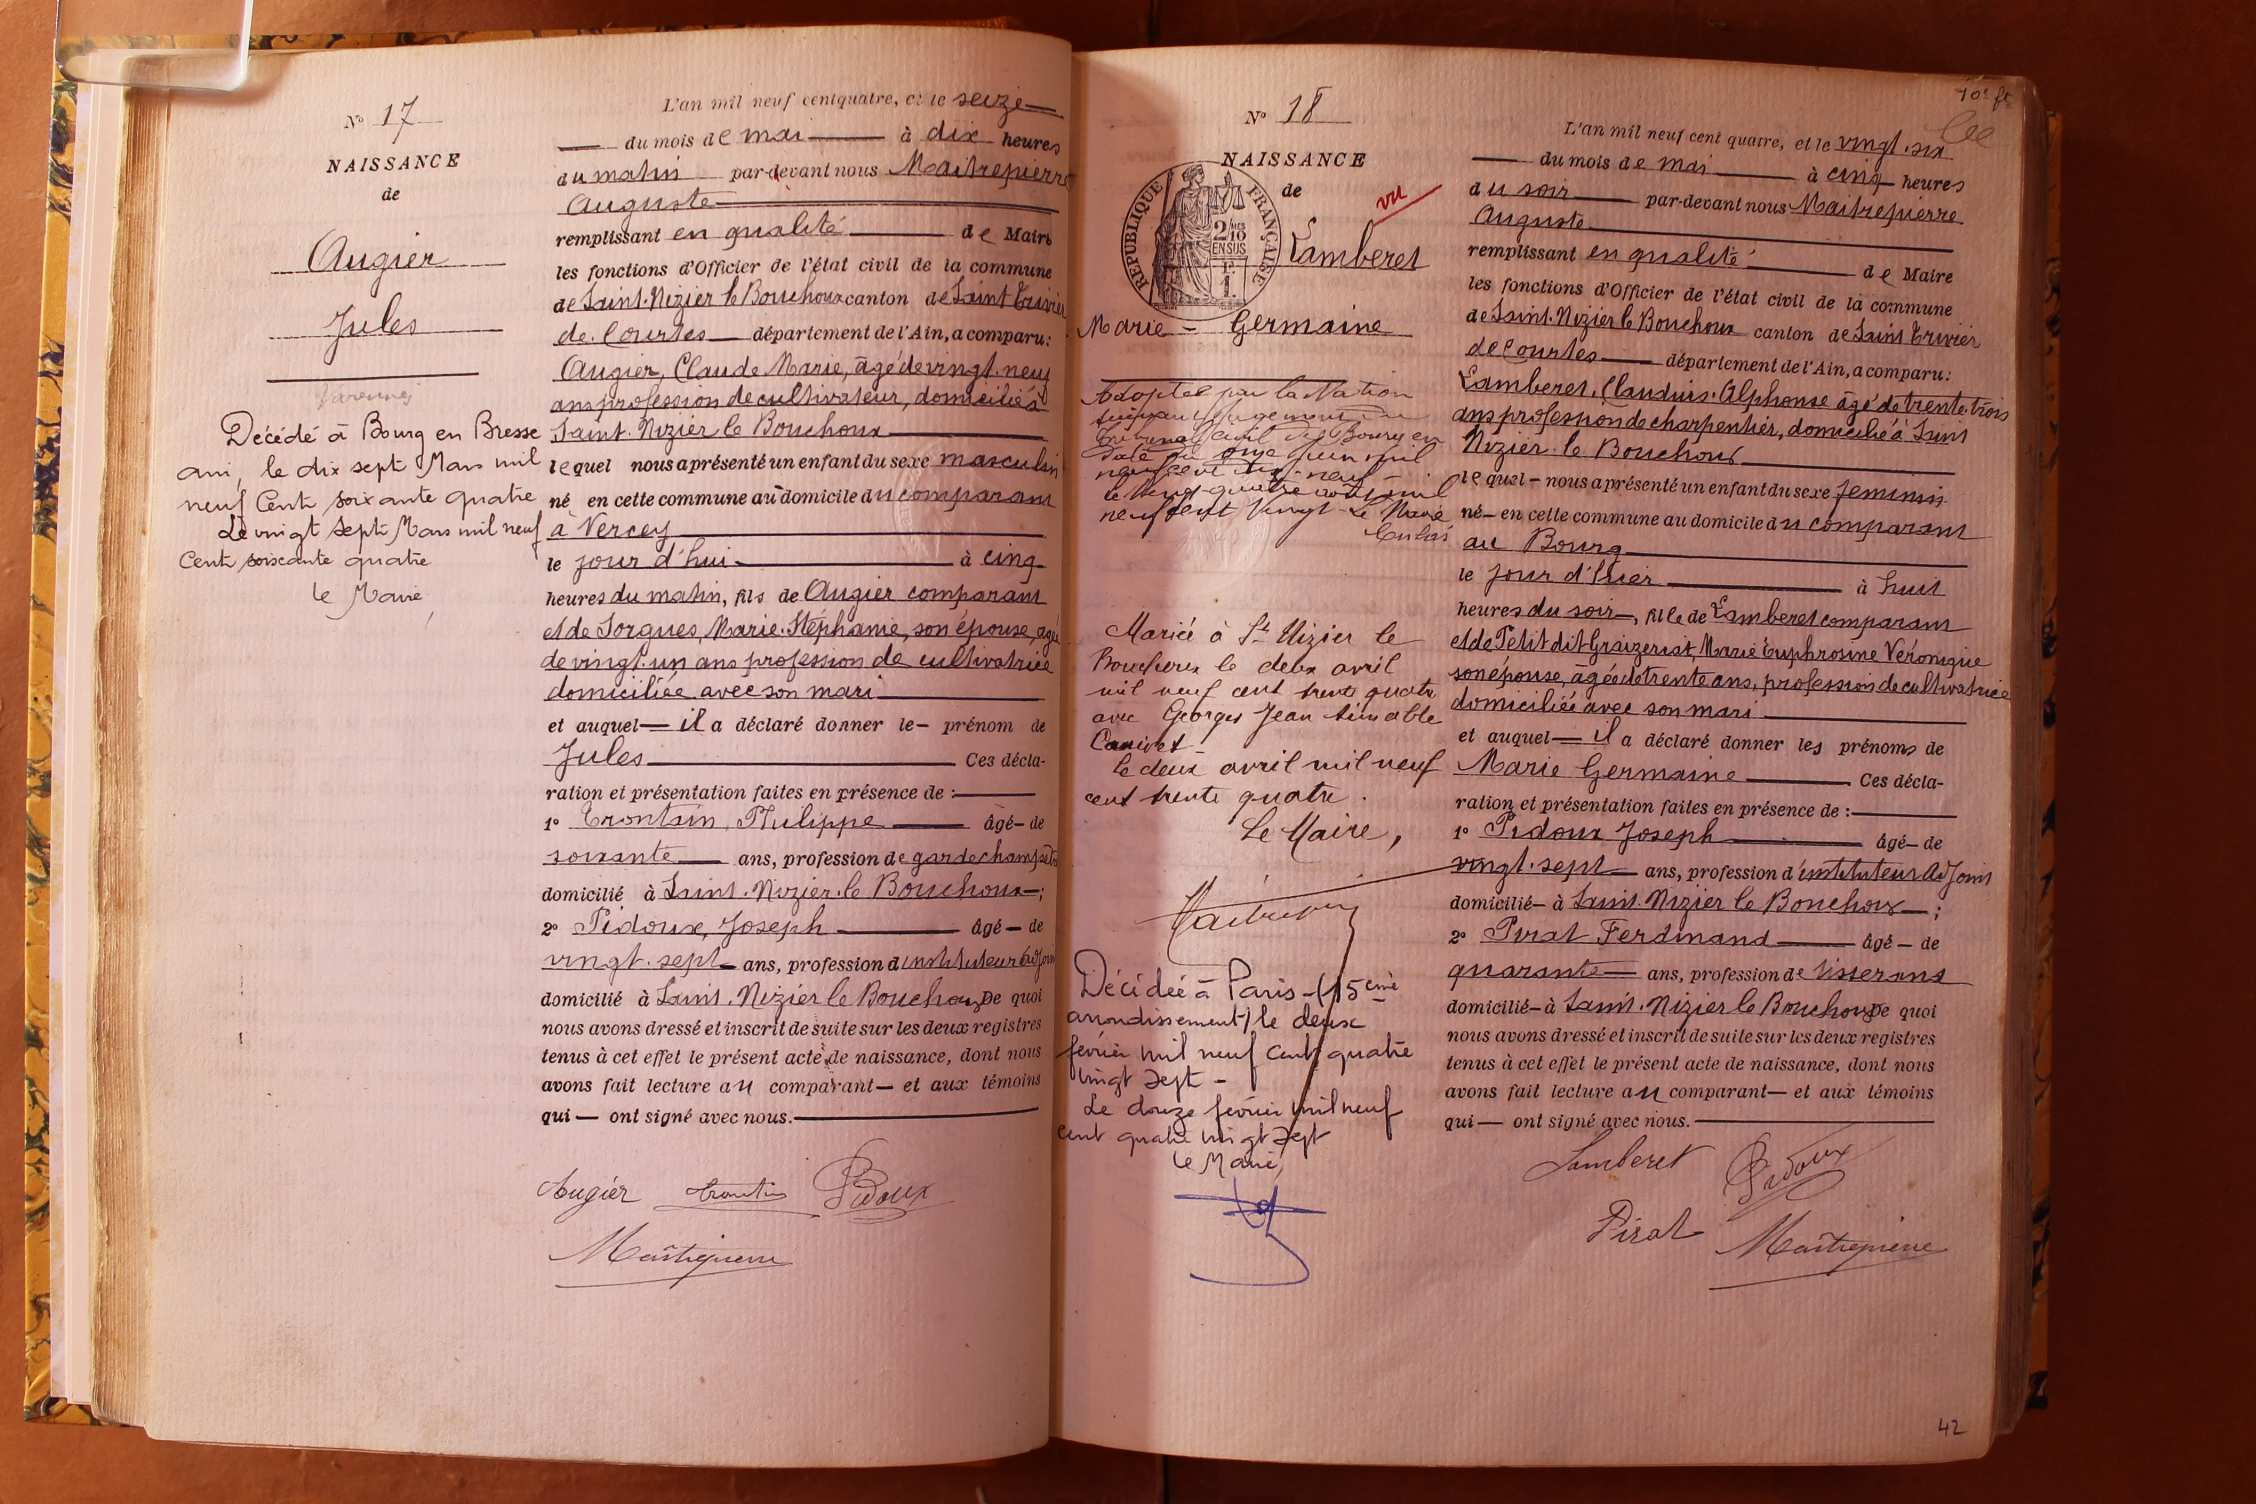 Nº 17
NAISSANCE
de
Augier
Jules
Varennes
Décédé à Bourg en Bresse
Ain, le dix sept Mars mil
neuf Cent soixante quatre
Le vingt sept Mars mil neuf
Cent soixante quatre
le Maire,
L'an mil neuf cent quatre, et le seize
du mois de mai à dix heures
du matin par-devant nous Maitrepierre
Auguste
remplissant en qualité de Maire
les fonctions d'Officier de l'état civil de la commune
de Saint-Nizier le Bouchoux canton de Saint Trivier
de Courtes département de l'Ain, a comparu:
Augier, Claude Marie, âgé de vingt-neuf
ans profession de cultivateur, domicilié à
Saint-Nizier le Bouchoux
lequel nous a présenté un enfant du sexe masculin
né en cette commune au domicile du comparant
à Vercey
le jour d'hui à cinq
heures du matin, fils de Augier comparant
et de Sorgues, Marie-Stéphanie, son épouse, agée
de vingt-un ans profession de cultivatrice
domiciliée avec son mari
et auquel il a déclaré donner le prénom de
Jules Ces décla-
ration et présentation faites en présence de :
1º Trontin, Philippe âgé de
soixante ans, profession de garde champêtre
domicilié à Saint-Nizier-le Bouchoux ;
2º Pidoux, Joseph âgé de
vingt-sept ans, profession d'instituteur adjoint
domicilié à Saint-Nizier le Bouchoux De quoi
nous avons dressé et inscrit de suite sur les deux registres
tenus à cet effet le présent acte de naissance, dont nous
avons fait lecture au comparant et aux témoins
qui ont signé avec nous.
Augier Trontin Pidoux
Maitrepierre
Nº 18
NAISSANCE
de
vu
REPUBLIQUE FRANÇAISE
2/10 EN SUS
Lamberet
Marie - Germaine
Adoptée par la Nation
suivant jugement du
Tribunal civil de Bourg en
date du onze juin mil
neuf cent dix-neuf
le vingt-quatre août mil
neuf cent vingt - Le Maire
Mariée à St Nizier le
Bouchoux le deux avril
mil neuf cent trente quatre
avec Georges Jean Aimable
Canivet
le deux avril mil neuf
cent trente quatre.
Le Maire,
Maitrepierre
Décédée à Paris (15ème
arrondissement) le deux
février mil neuf cent quatre
vingt sept -
Le douze février mil neuf
cent quatre vingt sept
le Maire,
L'an mil neuf cent quatre, et le vingt-six
du mois de mai à cinq heures
du soir par-devant nous Maitrepierre
Auguste
remplissant en qualité de Maire
les fonctions d'Officier de l'état civil de la commune
de Saint-Nizier le Bouchoux canton de Saint Trivier
de Courtes département de l'Ain, a comparu:
Lamberet, Claudius-Alphonse âgé de trente-trois
ans profession de charpentier, domicilié à Saint
Nizier-le Bouchoux
lequel nous a présenté un enfant du sexe feminin
né en cette commune au domicile du comparant
au Bourg
le jour d'hier à huit
heures du soir, fille de Lamberet comparant
et de Petit dit Graizeriat, Marie Euphrosine Véronique
son épouse, âgée de trente ans, profession de cultivatrice
domiciliée avec son mari
et auquel il a déclaré donner les prénoms de
Marie Germaine Ces décla-
ration et présentation faites en présence de :
1º Pidoux Joseph âgé de
vingt-sept ans, profession d'instituteur adjoint
domicilié à Saint-Nizier le Bouchoux ;
2º Pirat Ferdinand âgé de
quarante ans, profession de tisserand
domicilié à Saint-Nizier le Bouchoux De quoi
nous avons dressé et inscrit de suite sur les deux registres
tenus à cet effet le présent acte de naissance, dont nous
avons fait lecture au comparant et aux témoins
qui ont signé avec nous.
Lamberet Pidoux
Pirat Maitrepierre
42